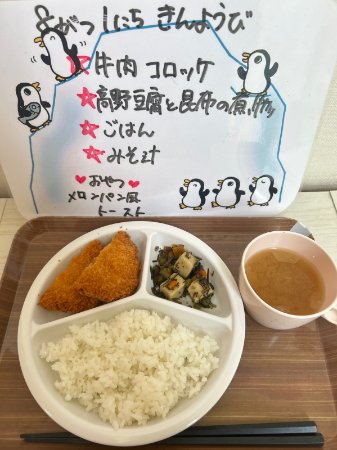 8がつ1にち きんようび
牛肉 コロッケ
高野豆腐と昆布の煮物
ごはん
みそ汁
おやつ
メロンパン風
トースト